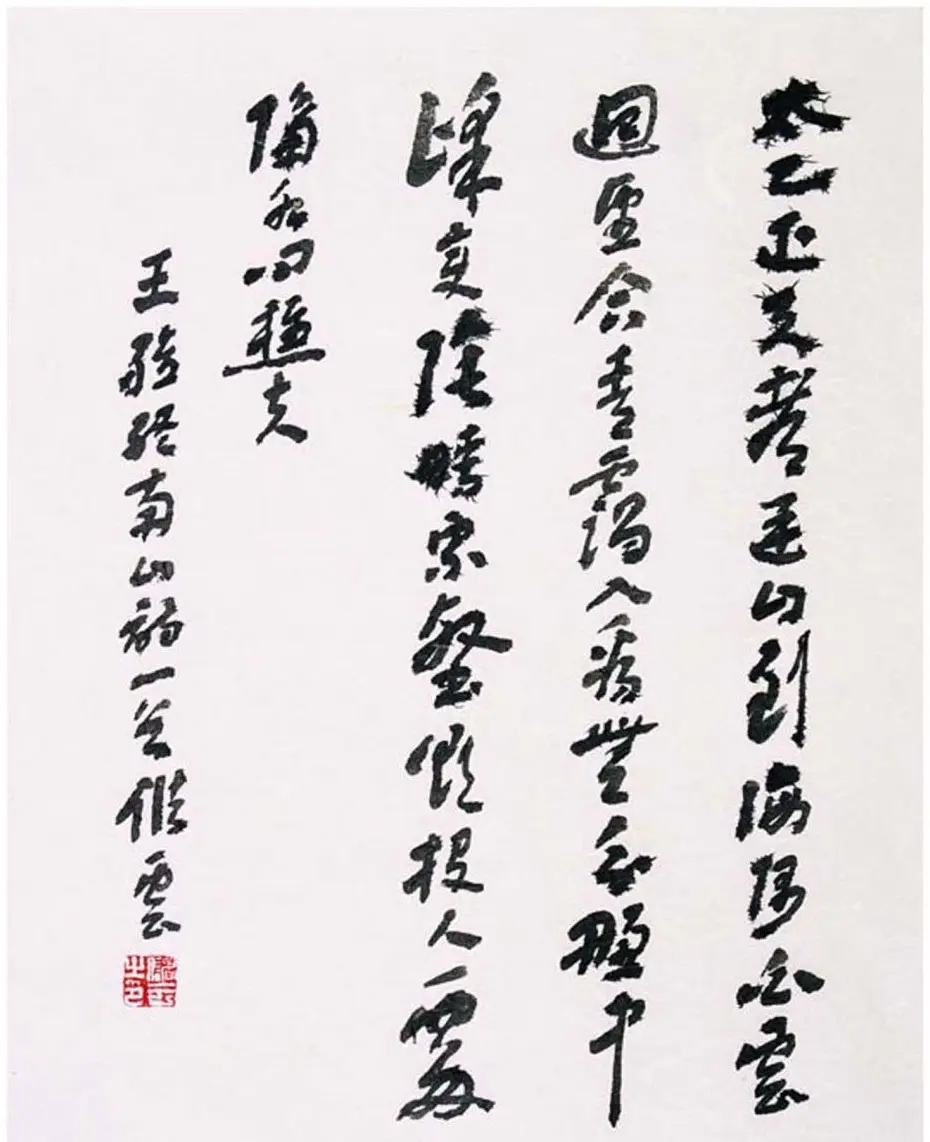 太乙近天都連山到海隅白雲
迴望合青靄入看無分野中
峰變陰晴衆壑欲投人
隔水问樵夫
王維終南山詩一首雲